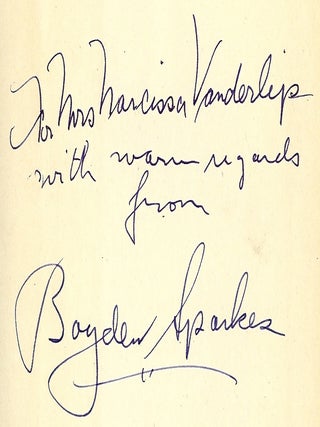 For Mrs Narcissa Vanderlip
with warm regards
from
Boyden Sparkes